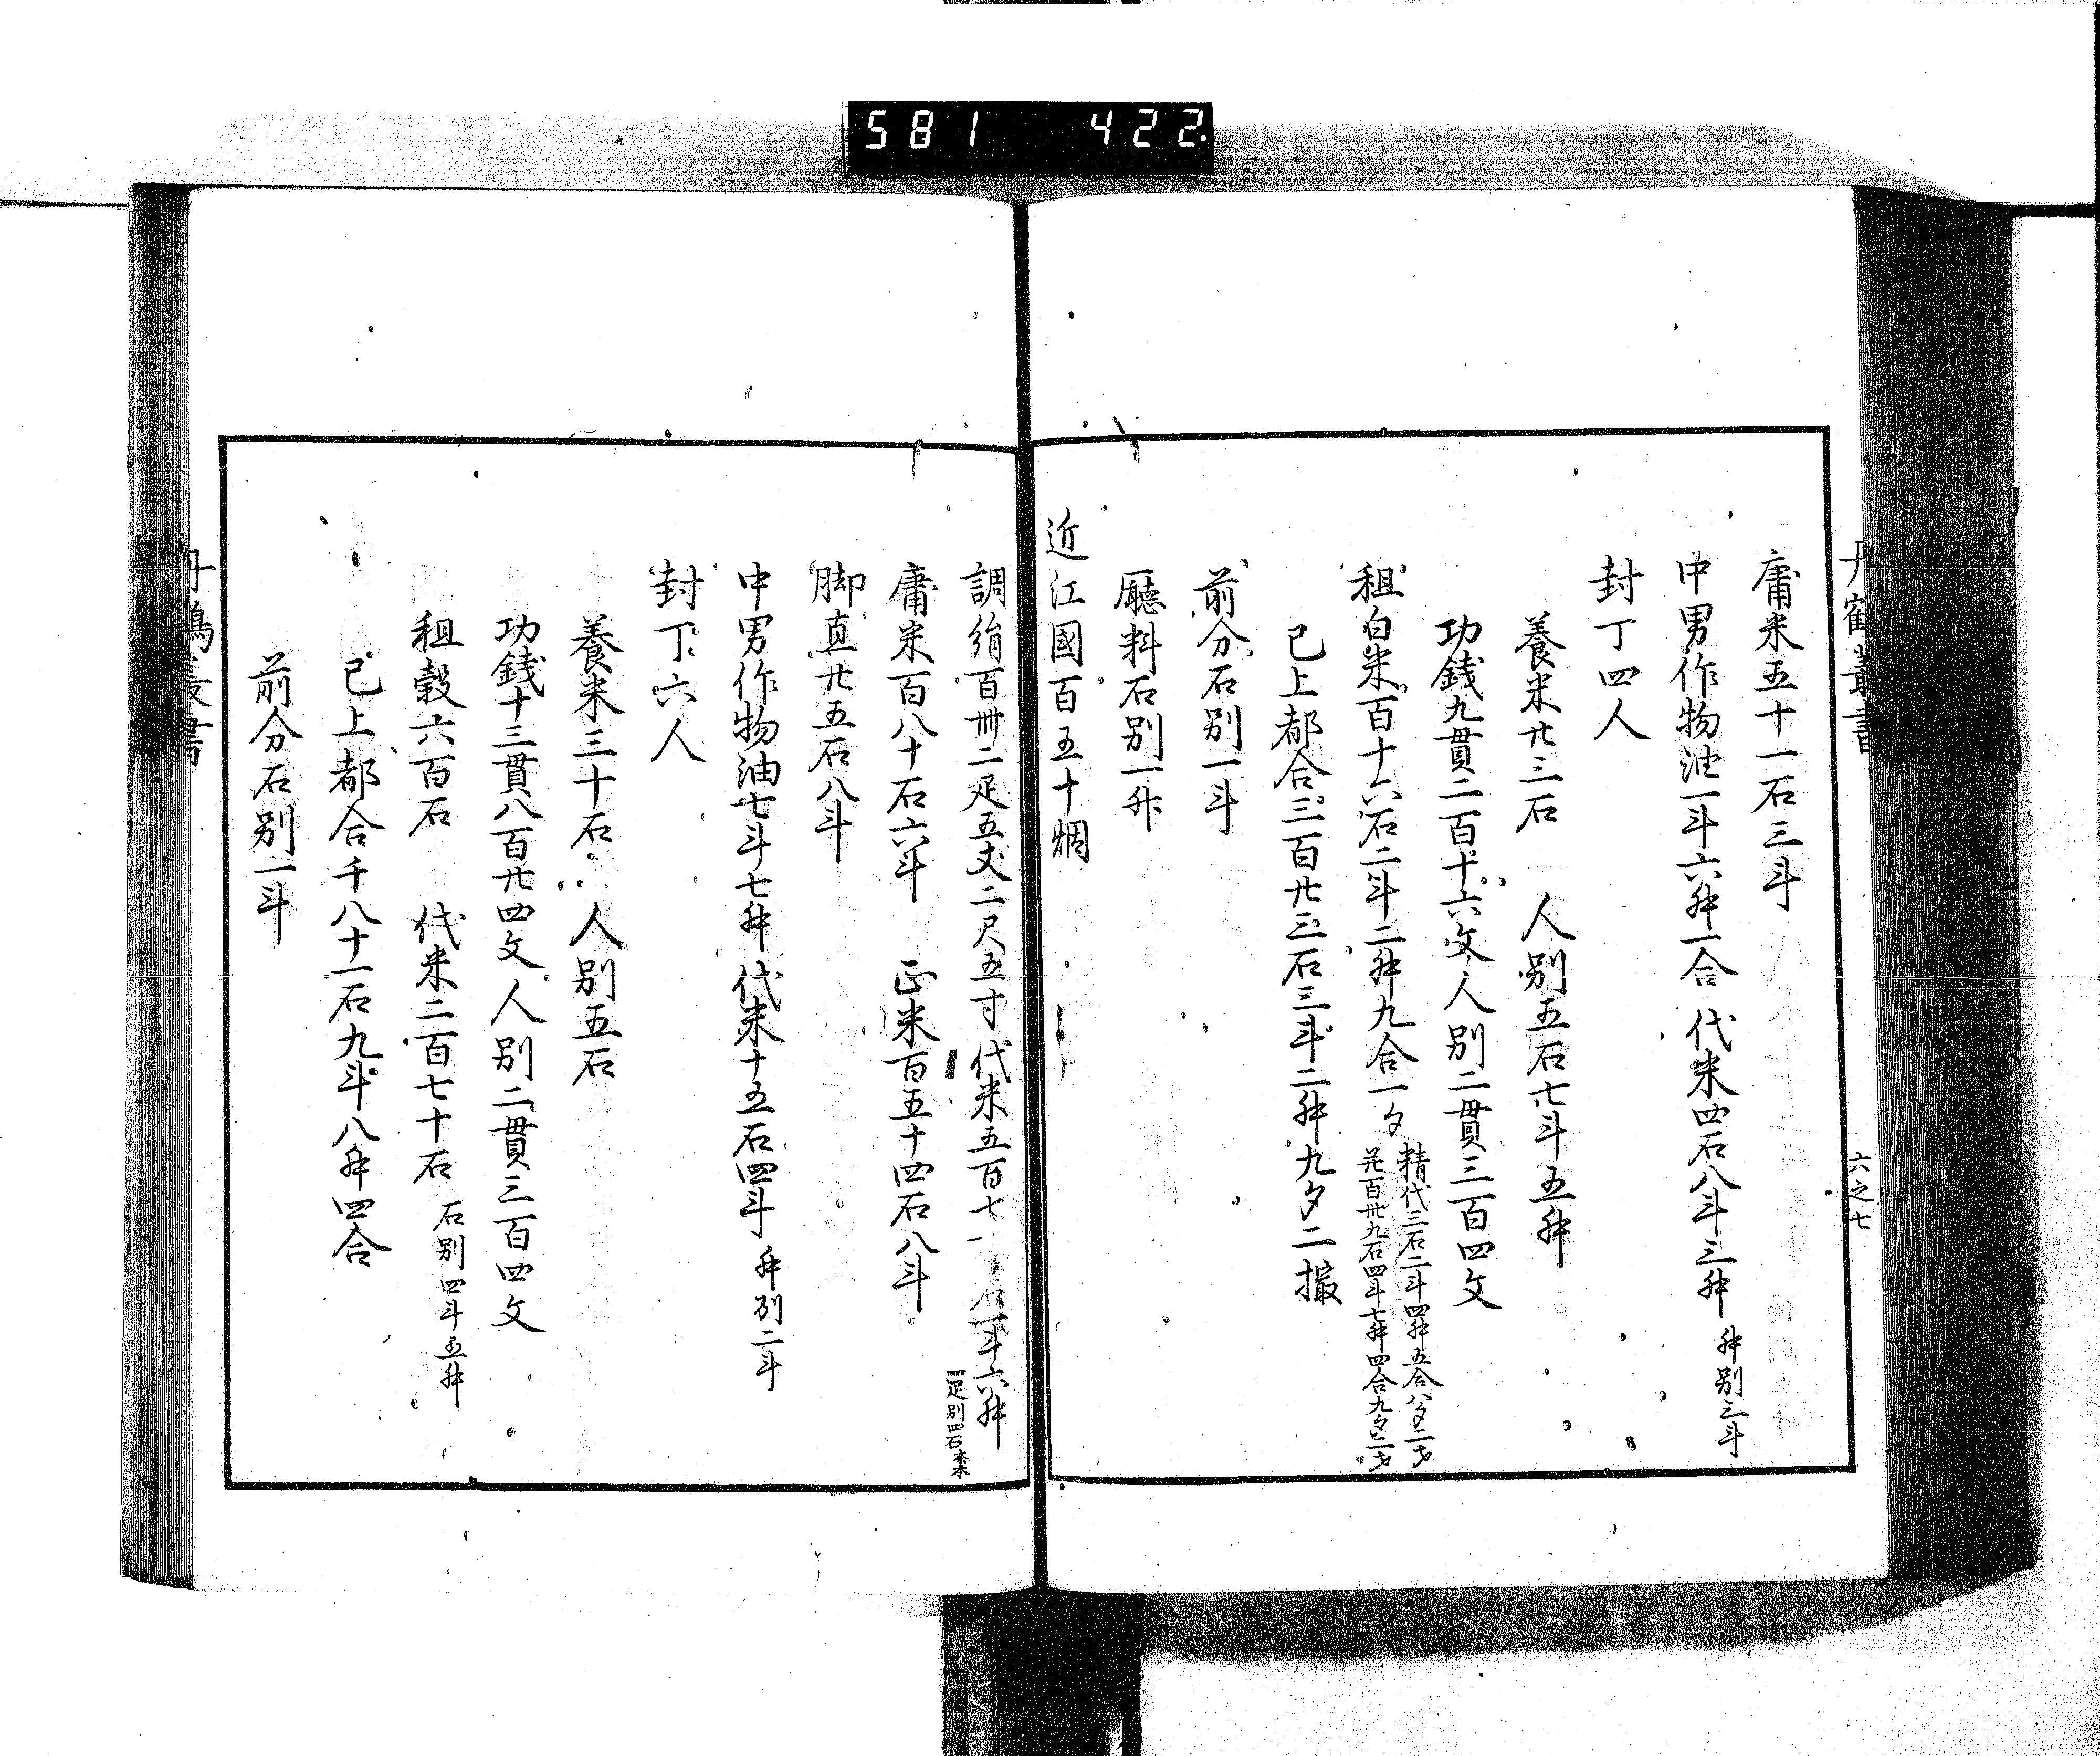 581 422
丹鶴叢書
六之七
庸米五十一石三斗
中男作物油一斗六升一合 代米四石八斗三升 升別三斗
封丁四人
養米廿三石 人別五石七斗五升
功錢九貫二百十六文人別二貫三百四文
租白米百十六石二斗二升九合一夕
精代三石二斗四升五合八夕二才
并百卅九石四斗七升四合九夕二才
已上都合三百廿三石三斗二升九夕二撮
前分石別一斗
廳料石別一升
近江國百五十烟
調絹百卌二疋五丈二尺五寸代米五百七一 石一斗六升
疋別四石
庸米百八十石六斗 正米百五十四石八斗
脚直廿五石八斗
中男作物油七斗七升 代米十五石四斗 升別二斗
封丁六人
養米三十石 人別五石
功錢十三貫八百廿四文人別二貫三百四文
租穀六百石 代米二百七十石 石別四斗五升
已上都合千八十一石九斗八升四合
前分石別一斗
丹鶴叢書